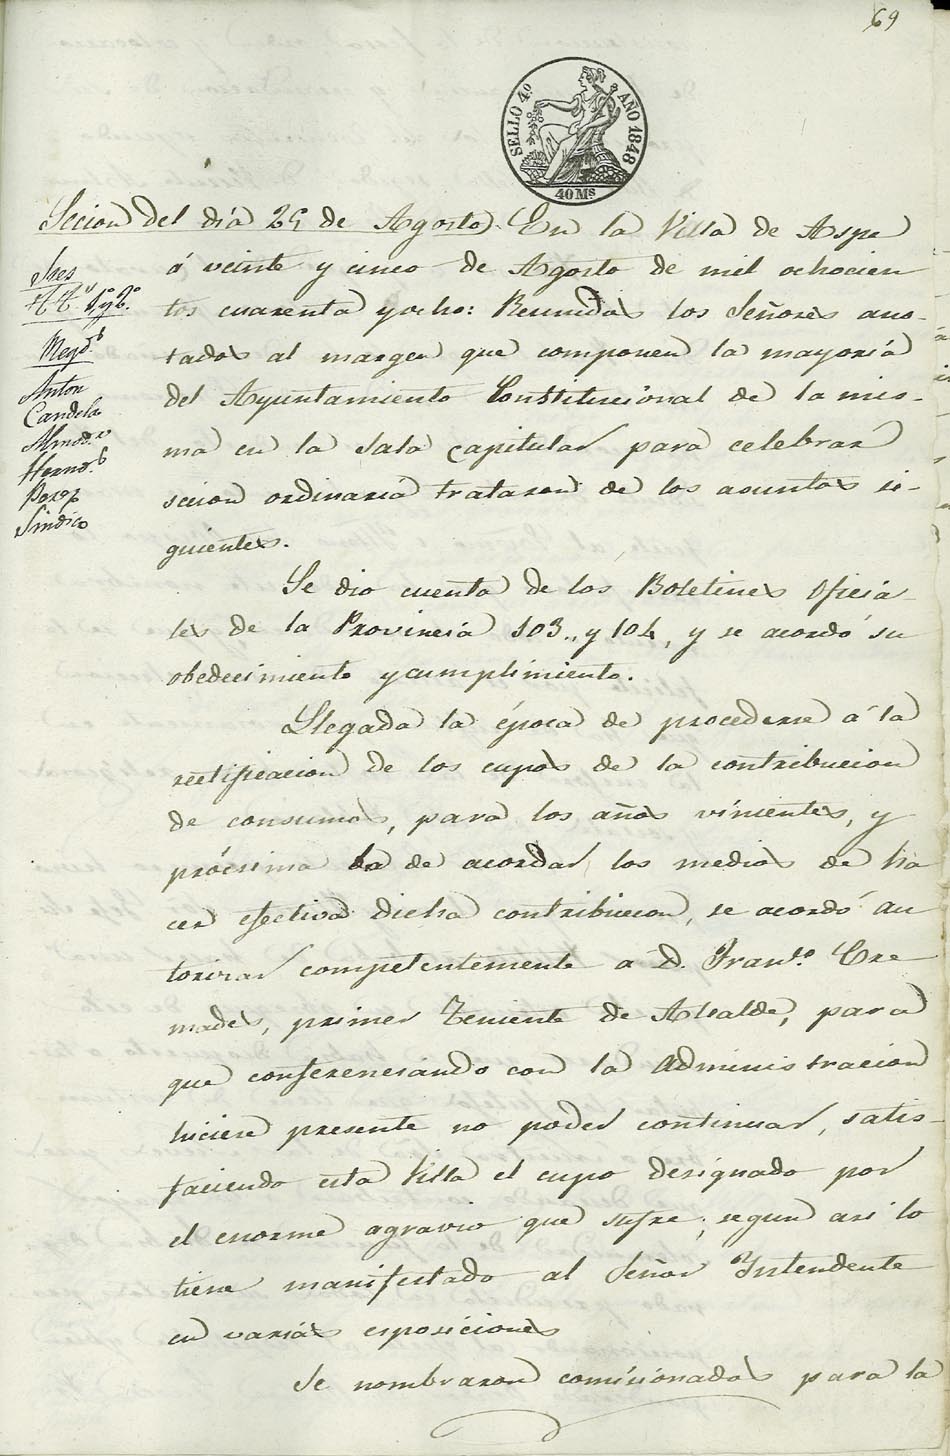 69
SELLO 4.º AÑO 1848
40 Ms
Secion del día 25 de Agosto. En la Villa de Aspe
á veinte y cinco de Agosto de mil ochocien
tos cuarenta y ocho: Reunidos los Señores ano-
tados al margen que componen la mayoría
del Ayuntamiento Constitucional de la mis-
ma en la Sala capitular para celebrar
secion ordinaria trataron de los asuntos si-
guientes.
Sres
A. A.s 1.º y 2.º
Regd.s
Anton
Candela
Almod.r
Hernd.s
Perez
Sindico
Se dio cuenta de los Boletines Oficia-
les de la Provincia 103., y 104, y se acordó su
obedecimiento y cumplimiento.
Llegada la época de procederse á la
rectificacion de los cupos de la contribucion
de consumos, para los años vinientes, y
prócsima la de acordar los medios de ha
cer efectiva dicha contribucion, se acordó au
torizar competentemente a D. Fran.co Cre
mades, primer Teniente de Alcalde, para
que conferenciando con la Administracion
hiciese presente no poder continuar, satis-
faciendo esta Villa el cupo designado por
el enorme agravio que sufre, segun asi lo
tiene manifestado al Señor Yntendente
en varias esposiciones
Se nombraron comicionados para la